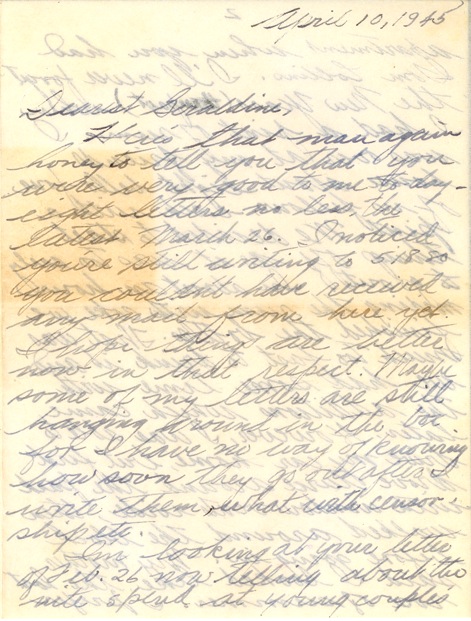 April 10, 1945
Dearest Geraldine,
Here's that man again
honey to tell you that you
were very good to me to-day-
eight letters no less, the
latest March 26. I noticed
you're still writing to 518 so
you couldn't have received
any mail from here yet.
I hope things are better
now in that respect. Maybe
some of my letters are still
hanging around in the
for I have no way of knowing
how soon they go out after I
write them, what with censor-
ship etc.
I'm looking at your letter
of Feb. 26 now telling about the
nite spend at young couples'